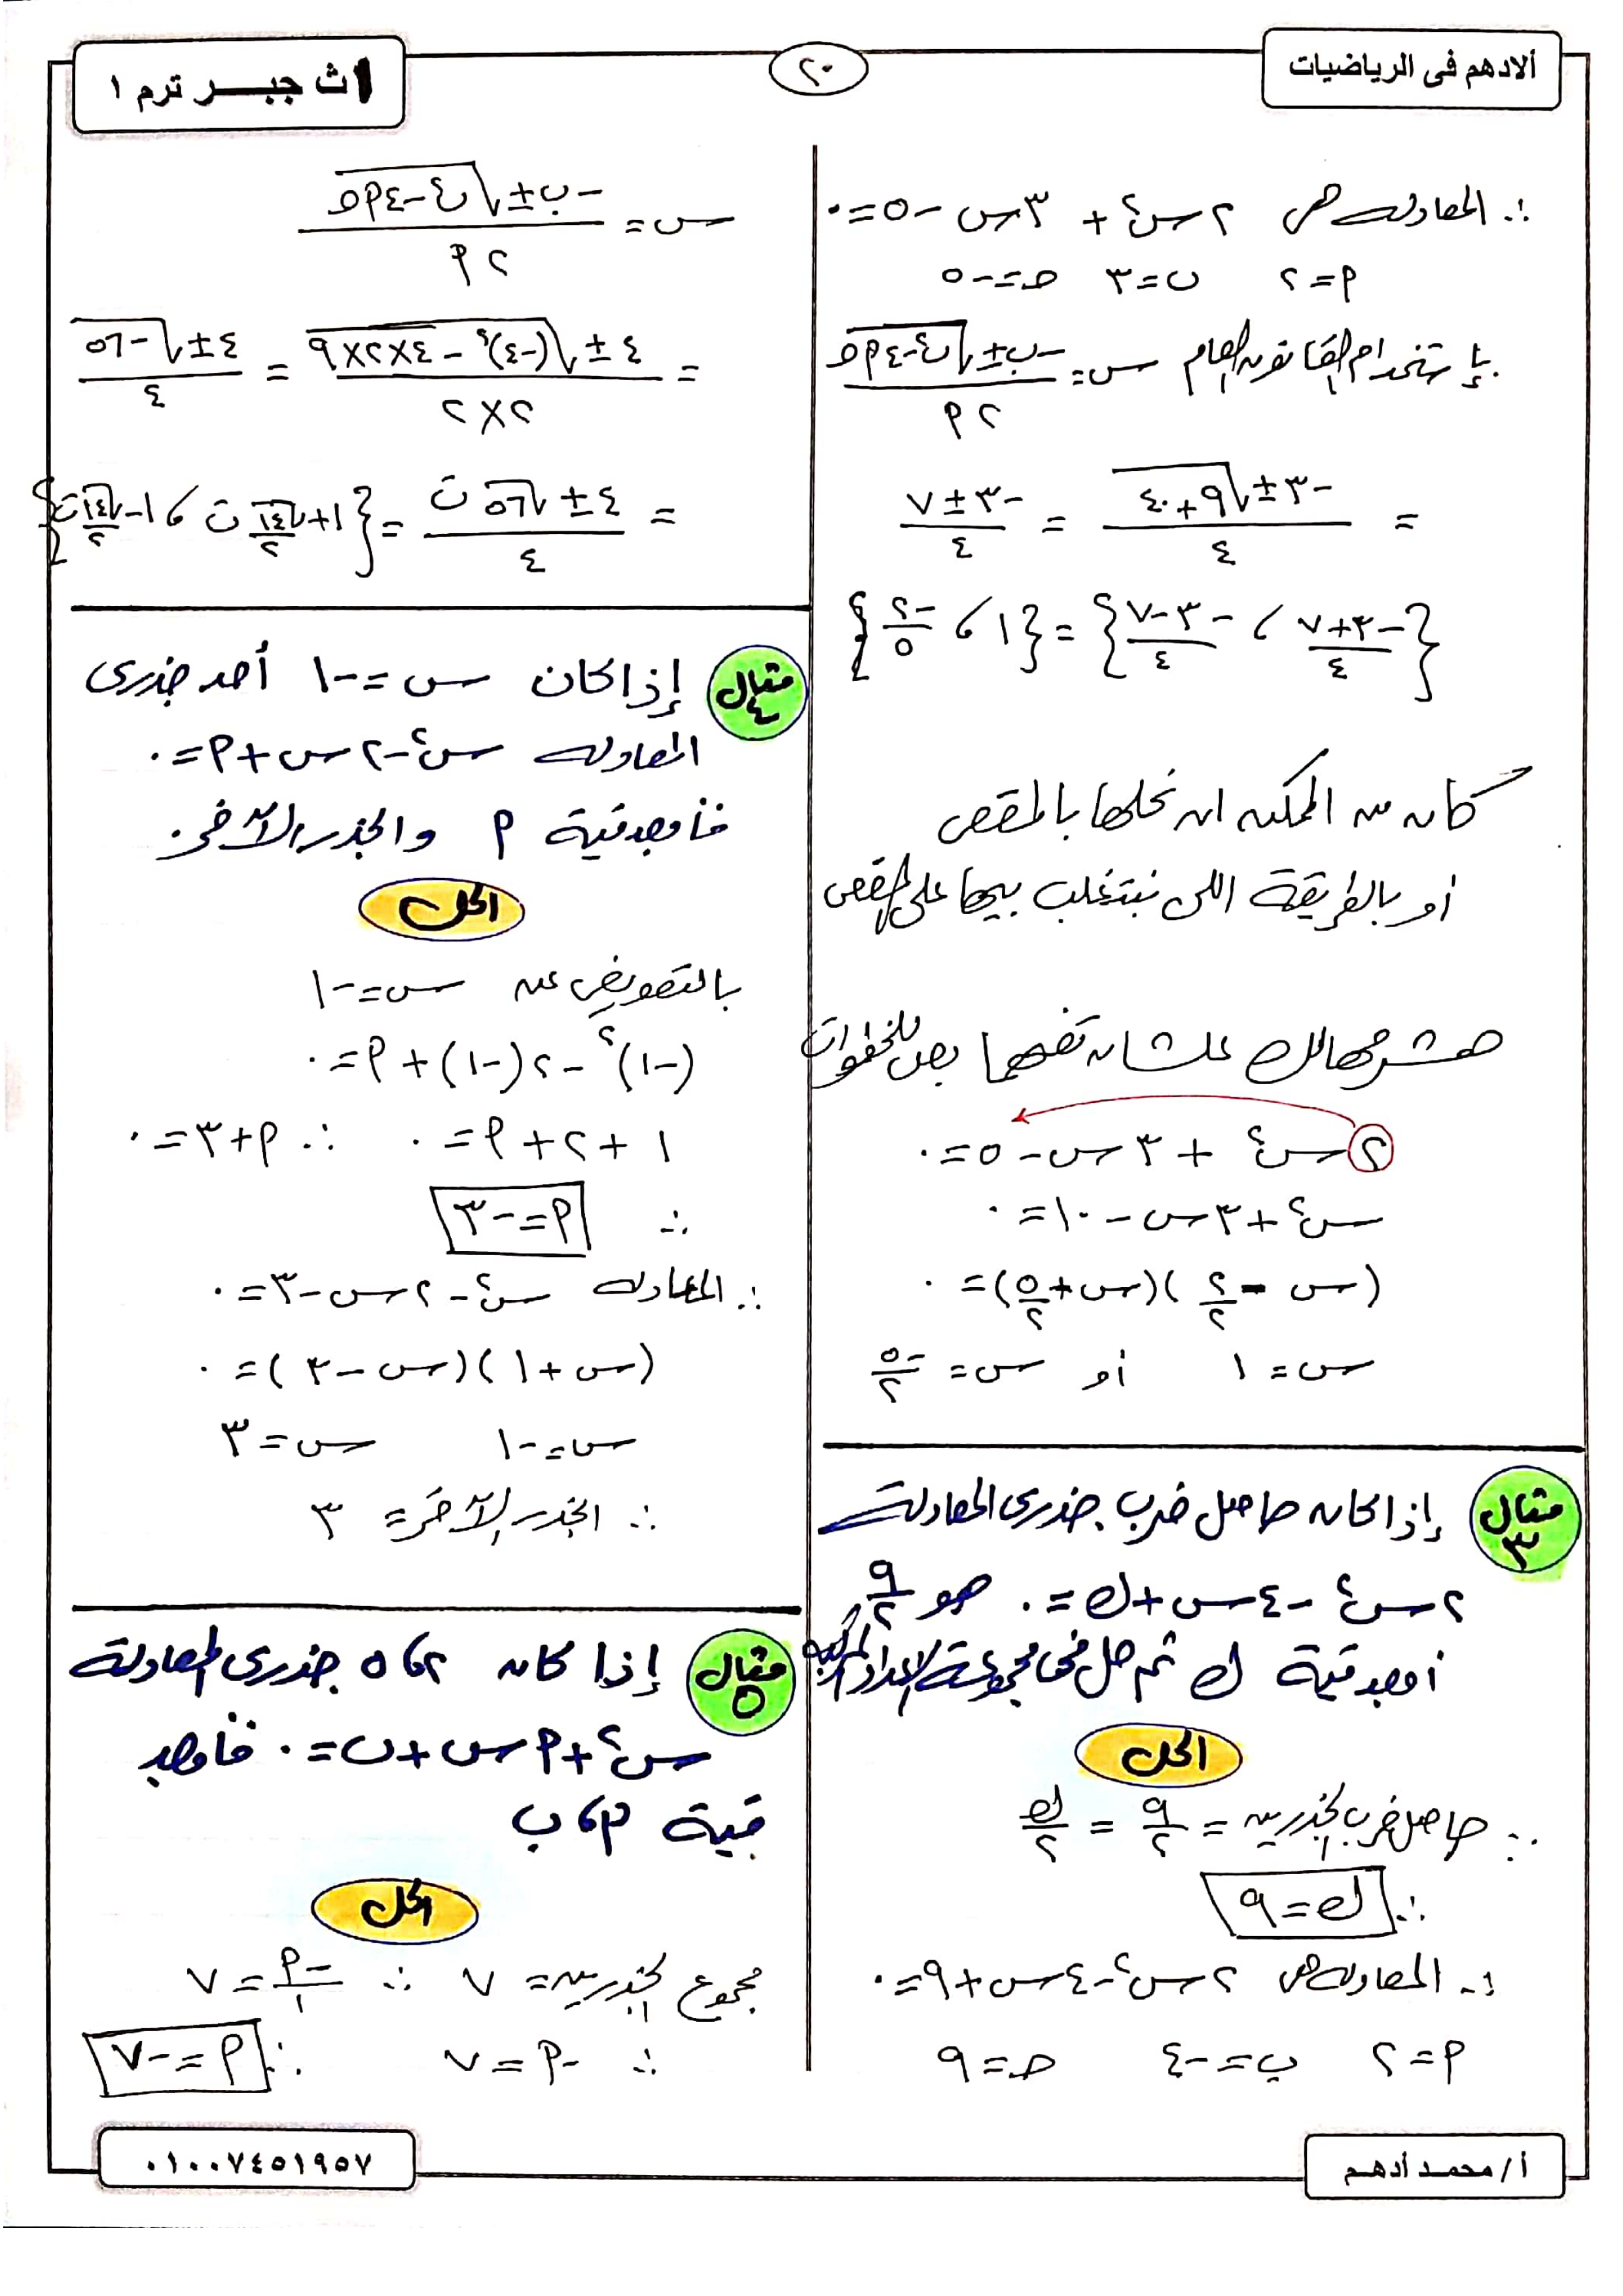 ألادهم فى الرياضيات
٢٠
١ث جبـــر ترم ١
∴ المعادلة هى ٢س٢ + ٣س - ٥ = ٠
أ = ٢ ب = ٣ حـ = -٥
بإستخدام القانون العام س = (-ب ± √(ب٢ - ٤أحـ)) / ٢أ
= (-٣ ± √(٩ + ٤٠)) / ٤ = (-٣ ± ٧) / ٤
{(-٣+٧)/٤ ، (-٣-٧)/٤} = {١ ، -٢/٥}
كان من الممكن ان نحلها بالمقص
أو بالطريقة اللى نبتغلب بيها على المقص
هشرحهالك علشان تفهما بص للخطوات
٢س٢ + ٣س - ٥ = ٠
س٢ + ٣س - ١٠ = ٠
(س - ٢/٢)(س + ٥/٢) = ٠
س = ١ أو س = -٥/٢
مثال ٣ إذا كان حاصل ضرب جذرى المعادلة
٢س٢ - ٤س + ك = ٠ هو ٩/٢
أوجد قيمة ك ثم حل فى مجموعة الاعداد المركبة
الحل
∵ حاصل ضرب الجذرين = ٩/٢ = ك/٢
∴ ك = ٩
∴ المعادلة هى ٢س٢ - ٤س + ٩ = ٠
أ = ٢ ب = -٤ حـ = ٩
س = (-ب ± √(ب٢ - ٤أحـ)) / ٢أ
= (٤ ± √((-٤)٢ - ٤×٢×٩)) / (٢×٢) = (٤ ± √-٥٦) / ٤
= (٤ ± √٥٦ ت) / ٤ = {١ + √١٤/٢ ت ، ١ - √١٤/٢ ت}
مثال ٤ إذا كان س = -١ أحد جذرى
المعادلة س٢ - ٢س + أ = ٠
فأوجد قيمة أ والجذر الآخر.
الحل
بالتعويض عن س = -١
(-١)٢ - ٢(-١) + أ = ٠
١ + ٢ + أ = ٠ ∴ أ + ٣ = ٠
∴ أ = -٣
∴ المعادلة س٢ - ٢س - ٣ = ٠
(س + ١)(س - ٣) = ٠
س = -١ س = ٣
∴ الجذر الآخر = ٣
مثال ٥ إذا كان ٢، ٥ جذرى المعادلة
س٢ + أس + ب = ٠ فأوجد
قيمة أ، ب
الحل
مجموع الجذرين = ٧ ∴ -أ/١ = ٧
∴ -أ = ٧ ∴ أ = -٧
أ/ محمد أدهم
٠١٠٠٧٤٥١٩٥٧